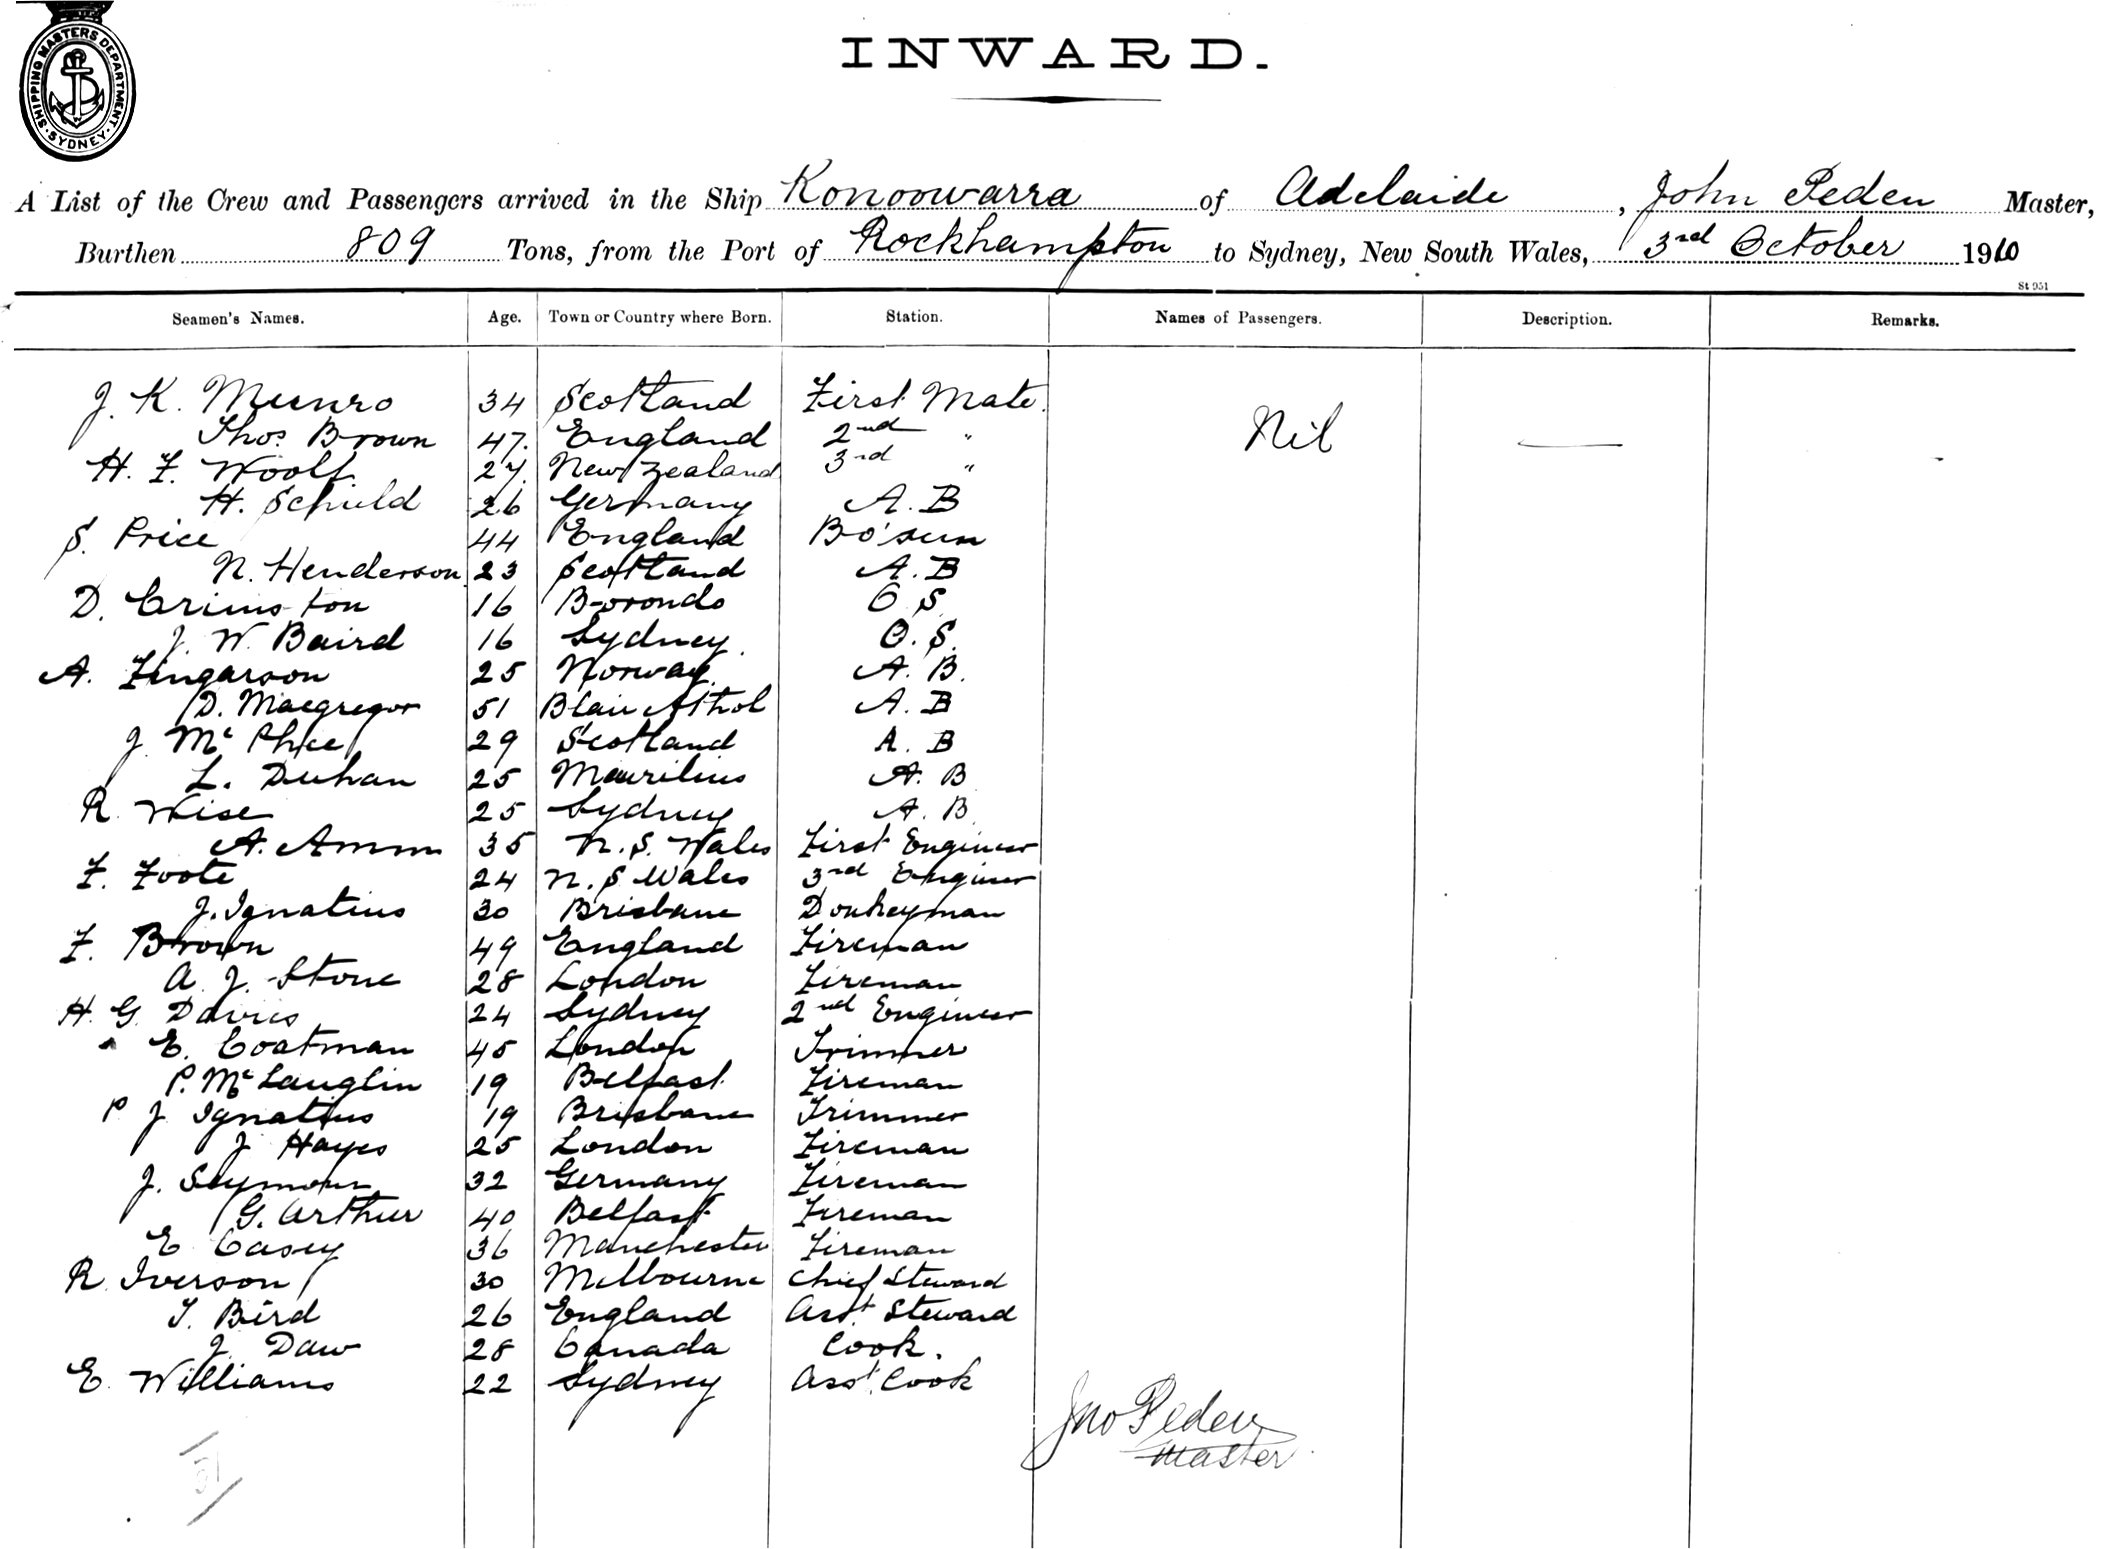 SHIPPING MASTERS DEPARTMENT. SYDNEY.
INWARD.
A List of the Crew and Passengers arrived in the Ship Konoowarra of Adelaide, John Peden Master,
Burthen 809 Tons, from the Port of Rockhampton to Sydney, New South Wales, 3rd October 1910
St 951
Seamen's Names. Age. Town or Country where Born. Station. Names of Passengers. Description. Remarks.
J. K. Munro 34 Scotland First Mate.
Thos Brown 47. England 2nd " Nil
H. F. Woolf 27. New Zealand 3rd "
H. Schuld 26 Germany A. B
S. Price 44 England Bo'sun
N. Henderson 23 Scotland A. B
D. 16 O S
J. W. Baird 16 Sydney. O. S.
A. 25 Norway. A. B.
D. Macgregor 51 Blair Athol A. B
J Mc Phee 29 Scotland A. B
L. Duhan 25 Mauritius A. B
R Wise 25 Sydney A. B
A. Amm 35 N. S. Wales First Engineer
F. Foote 24 N. S Wales 3rd Engineer
J. Ignatius 30 Brisbane Donkeyman
F. Brown 49 England Fireman
A. J. Stone 28 London Fireman
H. G. Davies 24 Sydney 2nd Engineer
E. Coatman 45 London Trimmer
P. Mc Lauglin 19 Belfast Fireman
P J Ignatius 19 Brisbane Trimmer
J Hayes 25 London Fireman
J. Seymour 32 Germany Fireman
G. Arthur 40 Belfast Fireman
E Casey 36 Manchester Fireman
R. Iverson 30 Melbourne Chief Steward
T. Bird 26 England Asst Steward
J. Daw 28 Canada Cook.
E. Williams 22 Sydney Asst. Cook
Jno Peden
Master
31